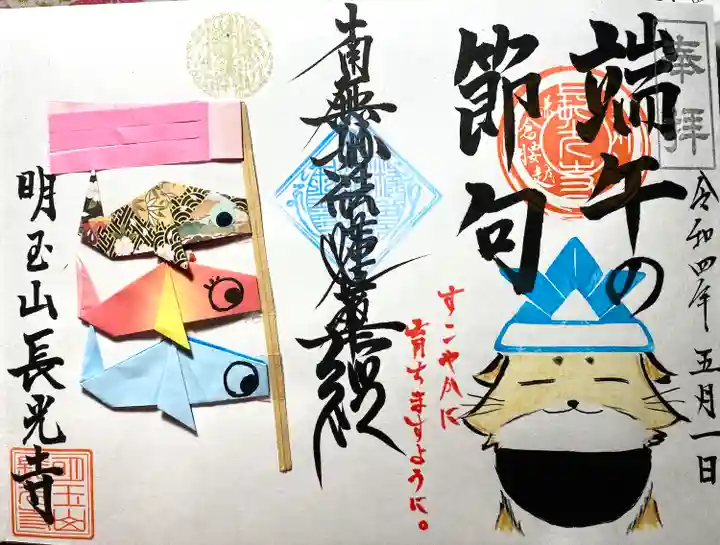 奉拝
端午の
節句
令和四年 五月一日
すこやかに
育ちますように。
南無妙法蓮華経
明玉山長光寺